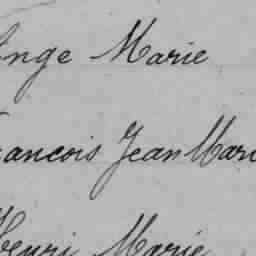 Ange Marie
François Jean Marie
Henri Marie